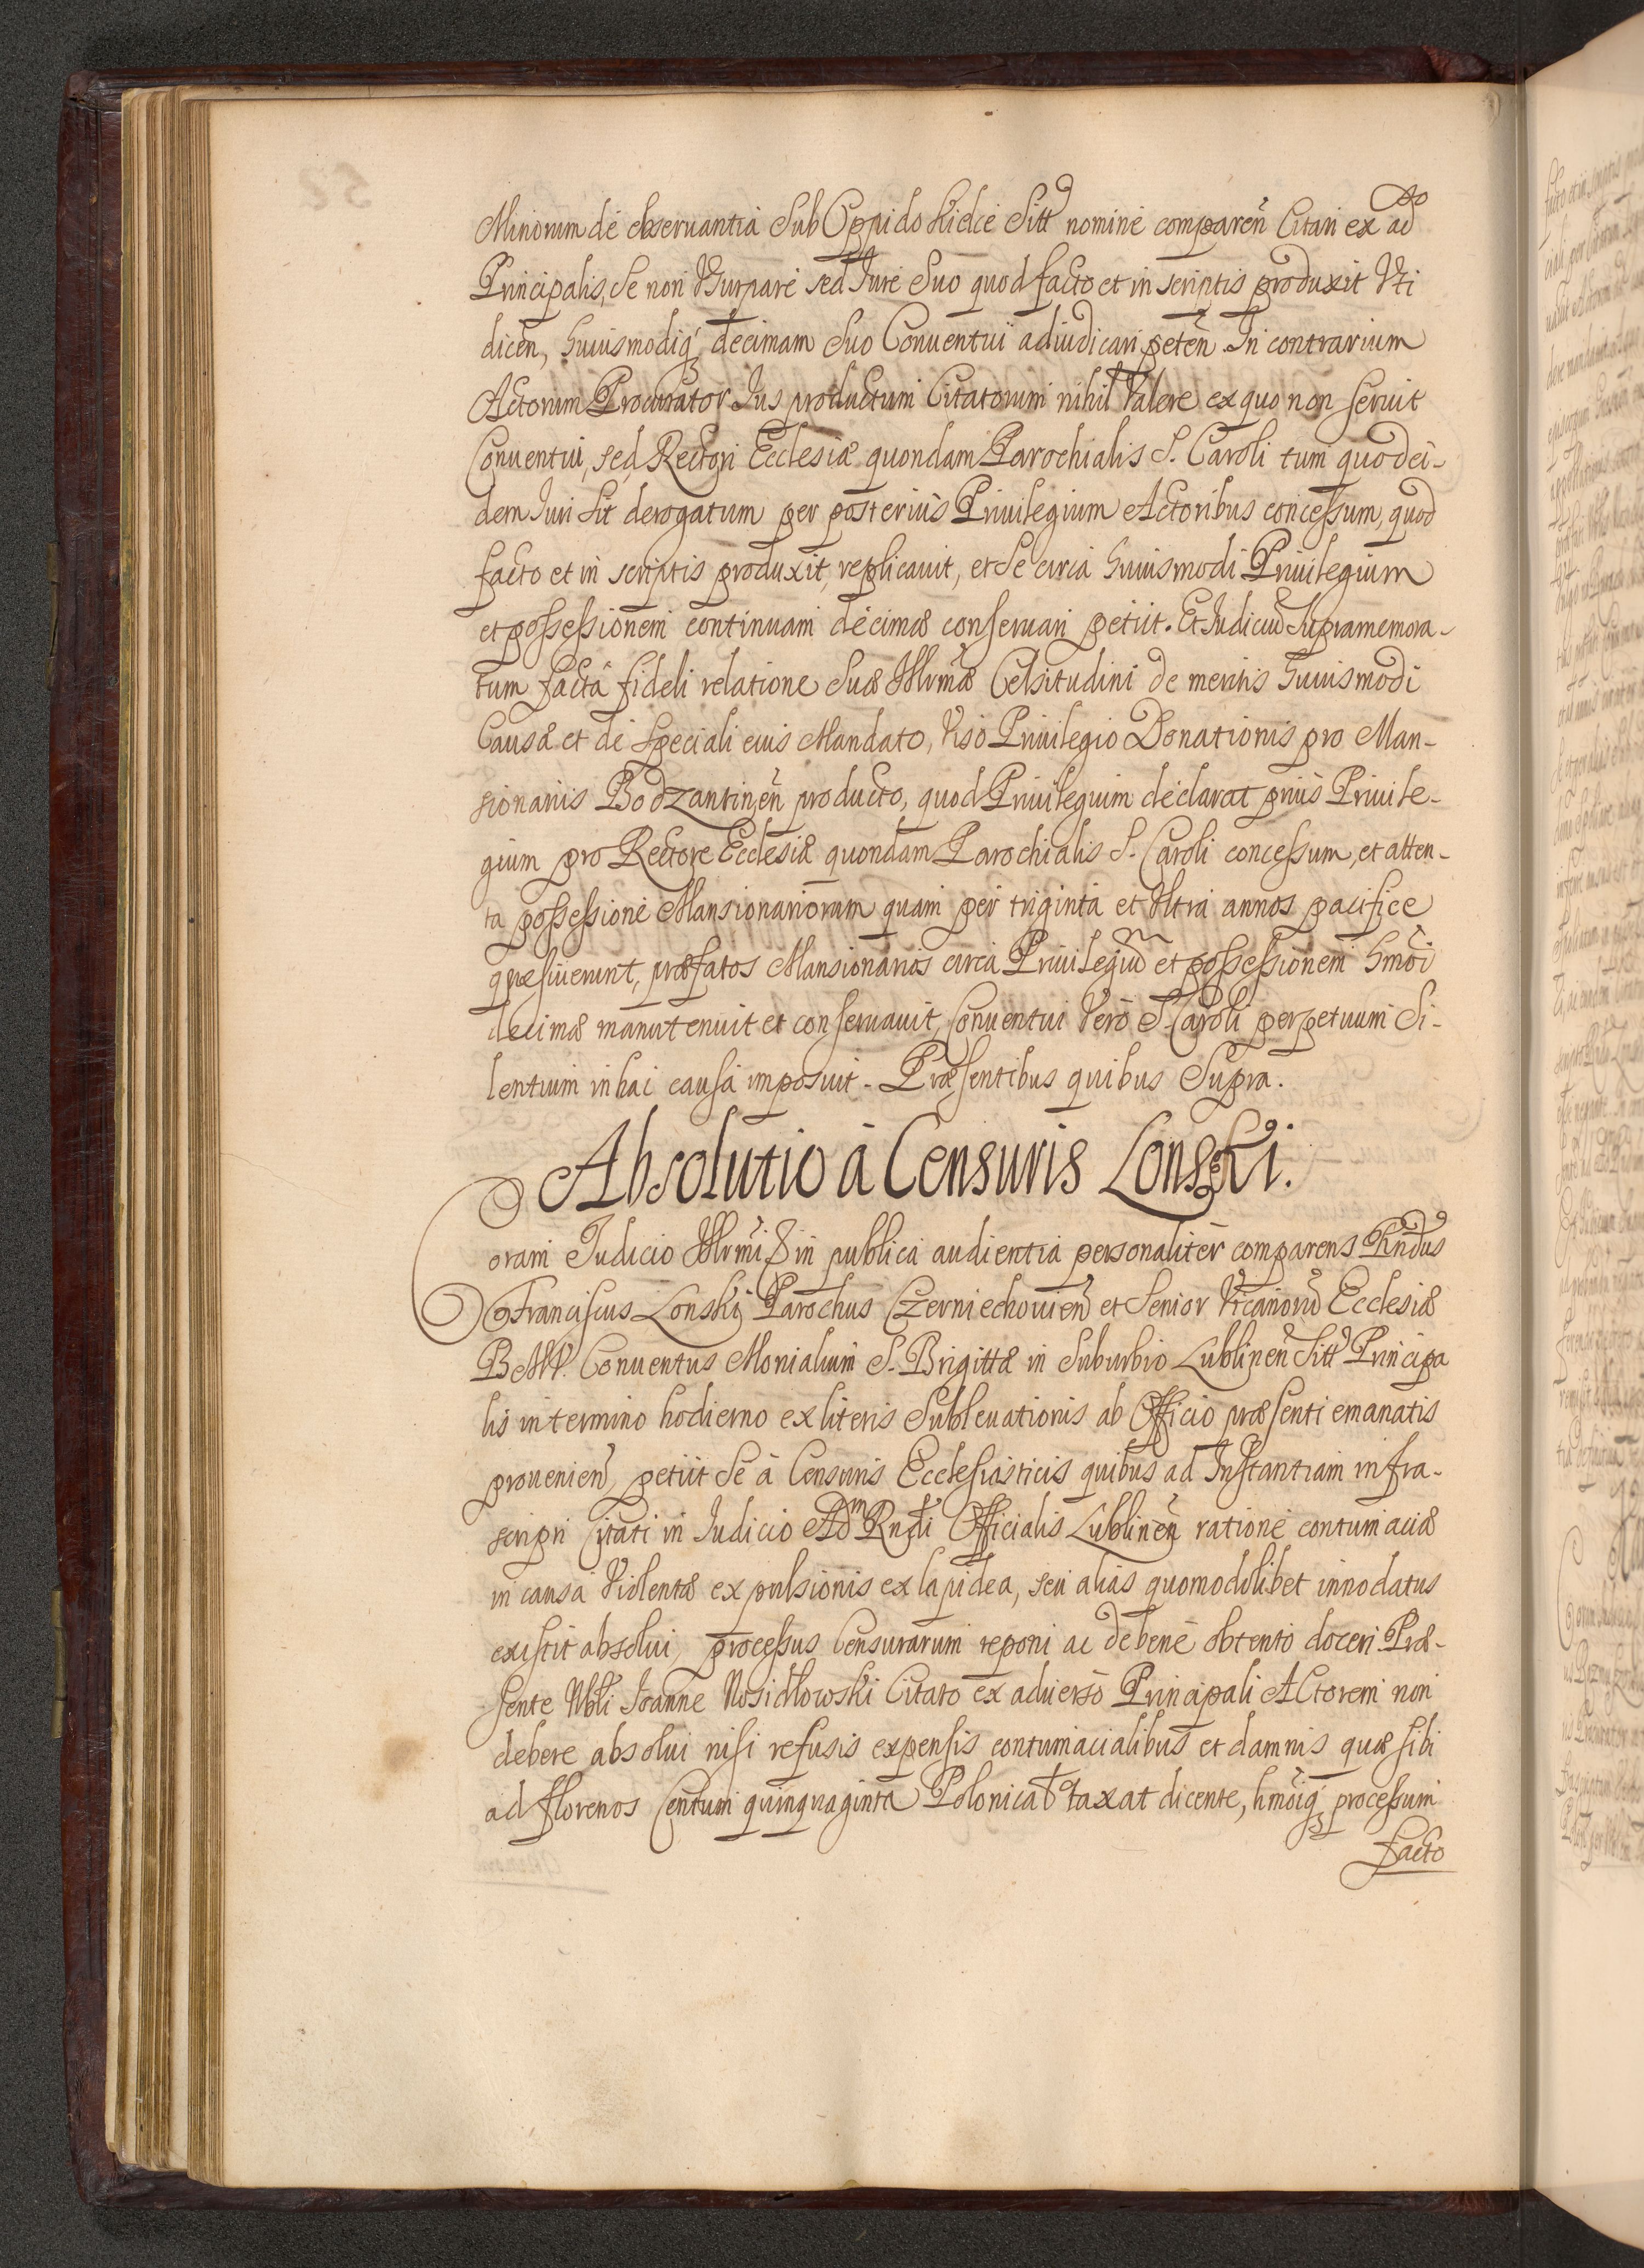 Minorum de obseruantia Sub Oppido Kielce Sitt nomine comparen Citati ex ado
Principalis, Se non Vsurpare sed Iure Suo quod facto et in scriptis produxit Vti
dicen, huiusmodiq decimam Suo Conuentui adiudicari peten. In contrarium
Actorum Procurator Ius productum Citatorum nihil Valere ex quo non seruit
Conuentui, sed Rectori Ecclesiæ quondam Parochialis S. Caroli tum quod ei-
dem Iuri sit derogatum per posterius Priuilegium Actoribus concessum, quod
facto et in scriptis produxit, replicauit, et Se circa huiusmodi Priuilegium
et possessionem continuam decimæ conseruari petiit. Et Iudiciu Supramemora-
tum factâ fideli relatione Suæ Illrmæ Celsitudini de meritis huiusmodi
Causæ et de Speciali eius Mandato, Viso Priuilegio Donationis pro Man-
sionariis Bodzantinen producto, quod Priuilegium declarat prius Priuile-
gium pro Rectore Ecclesiæ quondam Parochialis S. Caroli concessum, et atten-
ta possessione Mansionariorum quam per triginta et Vltra annos pacifice
quæsiuerunt, præfatos Mansionarios circa Priuilegiu et possessionem hmoi
decimæ manutenuit et conseruauit, Conuentui Vero S. Caroli perpetuum Si-
lentium in hac causa imposuit. Præsentibus quibus Supra.
Absolutio â Censuris Lonski.
Coram Iudicio Illrmi D in publica audientia personaliter comparens Rndus
Franciscus Lonskij Parochus Czerniechouien et Senior Vicarioru Ecclesiæ
BMV. Conuentus Monialium S. Brigittæ in Suburbio Lublinen Sitt Principa
lis in termino hodierno ex literis Subleuationis ab Officio præsenti emanatis
prouenien, petiit Se â Censuris Ecclesiasticis quibus ad Instantiam infra-
scripti Citati in Iudicio Adm Rndi Officialis Lublinen ratione contumaciæ
in causa Violentæ expulsionis ex lapidea, seu alias quomodolibet innodatus
existit absolui, processus Censurarum reponi ac de bene obtento doceri. Præ-
sente Nbli Ioanne Nosidlowski Citato ex aduerso Principali Actorem non
debere absolui nisi refusis expensis contumacialibus et damnis quæ sibi
ad florenos Centum quinquaginta Polonical taxat dicente, hmoiq processum
facto